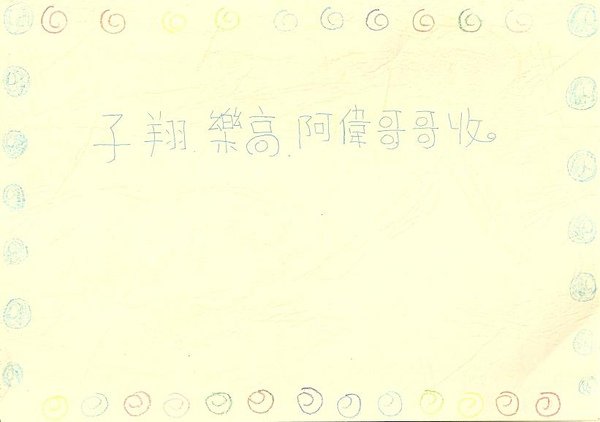 子翔.樂高.阿偉哥哥收。